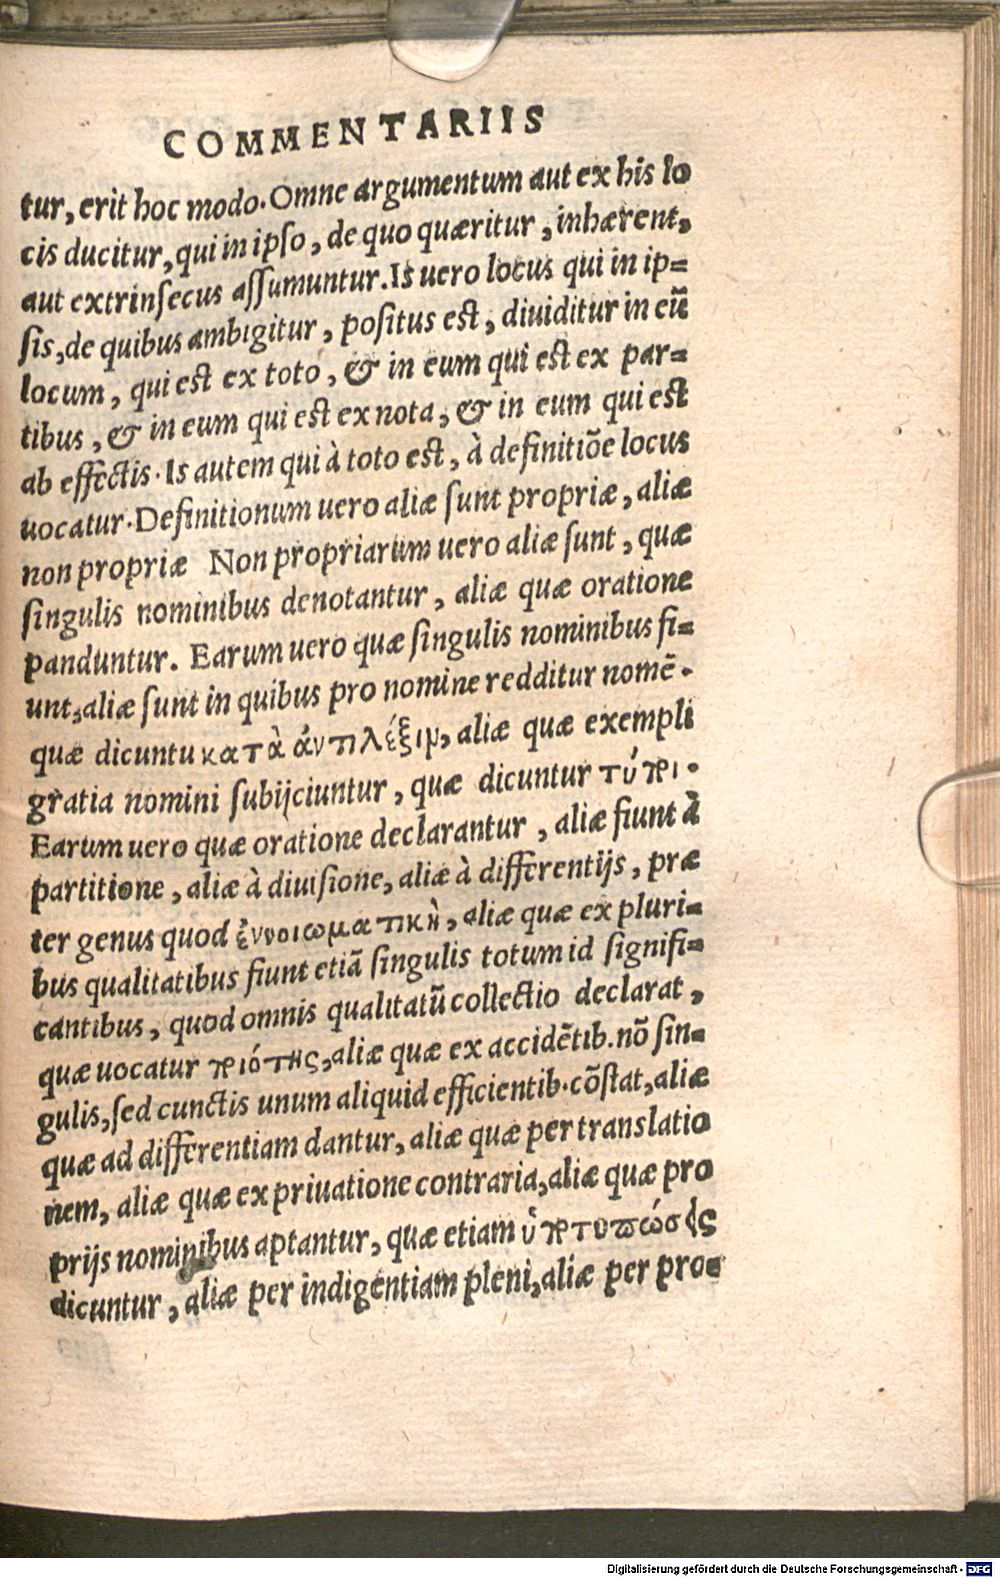 COMMENTARIIS
tur, erit hoc modo. Omne argumentum aut ex his lo
cis ducitur, qui in ipso, de quo quæritur, inhærent,
aut extrinsecus assumuntur. Is uero locus qui in ip=
sis, de quibus ambigitur, positus est, diuiditur in eū
locum, qui est ex toto, & in eum qui est ex par=
tibus, & in eum qui est ex nota, & in eum qui est
ab effectis. Is autem qui à toto est, à definitiōe locus
uocatur. Definitionum uero aliæ sunt propriæ, aliæ
non propriæ Non propriarum uero aliæ sunt, quæ
singulis nominibus denotantur, aliæ quæ oratione
panduntur. Earum uero quæ singulis nominibus fi=
unt, aliæ sunt in quibus pro nomine redditur nomē.
quæ dicuntu κατὰ ἀντιλέξιμ, aliæ quæ exempli
gratia nomini subijciuntur, quæ dicuntur τύπι.
Earum uero quæ oratione declarantur, aliæ fiunt à
partitione, aliæ à diuisione, aliæ à differentijs, præ
ter genus quod ἐννοιωματικὴ, aliæ quæ ex pluri=
bus qualitatibus fiunt etiā singulis totum id signifi=
cantibus, quod omnis qualitatū collectio declarat,
quæ uocatur πιότης, aliæ quæ ex accidētib. nō sin=
gulis, sed cunctis unum aliquid efficientib. cōstat, aliæ
quæ ad differentiam dantur, aliæ quæ per translatio
nem, aliæ quæ ex priuatione contraria, aliæ quæ pro
prijs nominibus aptantur, quæ etiam ὑπτυπώσῃς
dicuntur, aliæ per indigentiam pleni, aliæ per pro=
Digitalisierung gefördert durch die Deutsche Forschungsgemeinschaft - DFG